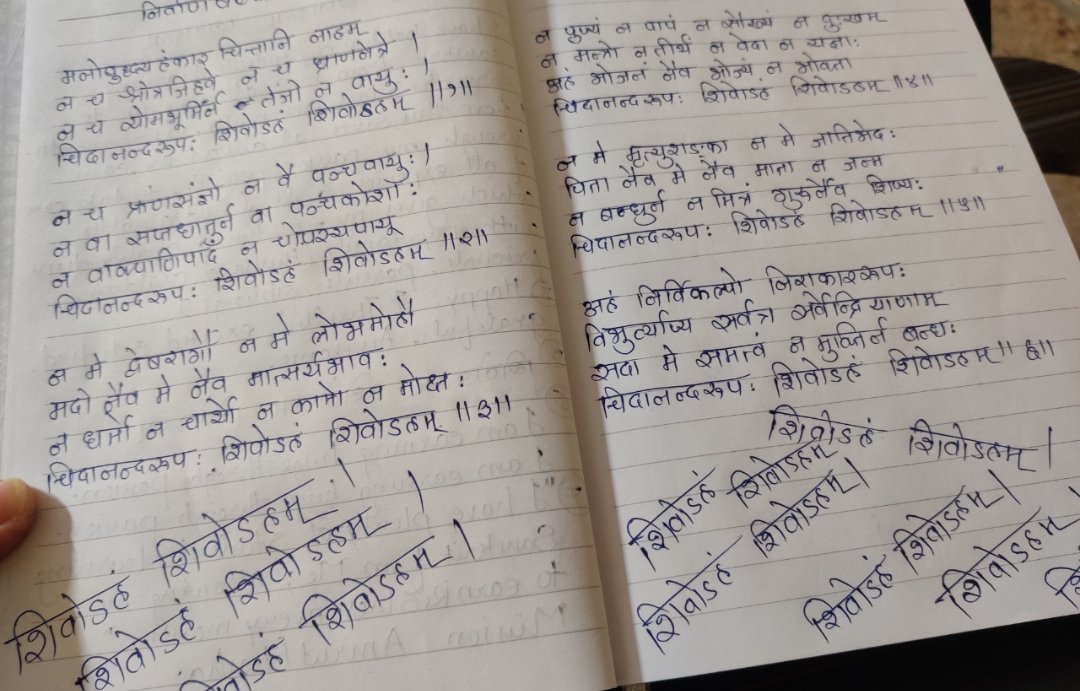 निर्वाण
मनोबुद्ध्यहंकार चित्तानि नाहम
न च श्रोत्रजिह्वे न च घ्राणनेत्रे ।
न च व्योमभूमिर्न तेजो न वायुः ।
चिदानन्दरूपः शिवोऽहं शिवोऽहम् ॥१॥
न च प्राणसंज्ञो न वै पञ्चवायुः ।
न वा सप्तधातुर्न वा पञ्चकोशाः
न वाक्पाणिपादं न चोपस्थपायू
चिदानन्दरूपः शिवोऽहं शिवोऽहम् ॥२॥
न मे द्वेषरागौ न मे लोभमोहौ
मदो नैव मे नैव मात्सर्यभावः
न धर्मो न चार्थो न कामो न मोक्षः
चिदानन्दरूपः शिवोऽहं शिवोऽहम् ॥३॥
शिवोऽहं शिवोऽहम् ।
शिवोऽहं शिवोऽहम ।
शिवोऽहं शिवोऽहम् ।
न पुण्यं न पापं न सौख्यं न दुःखम
न मन्त्रो न तीर्थं न वेदा न यज्ञाः
अहं भोजनं नैव भोज्यं न भोक्ता
चिदानन्दरूपः शिवोऽहं शिवोऽहम् ॥४॥
न मे मृत्युशङ्का न मे जातिभेदः
पिता नैव मे नैव माता न जन्म
न बन्धुर्न न मित्रं गुरुर्नैव शिष्यः
चिदानन्दरूपः शिवोऽहं शिवोऽहम् ॥५॥
अहं निर्विकल्पो निराकाररूपः
विभुर्व्याप्य सर्वत्र सर्वेन्द्रियाणाम
सदा मे समत्वं न मुक्तिर्न बन्धः
चिदानन्दरूपः शिवोऽहं शिवोऽहम् ॥६॥
शिवोऽहं शिवोऽहम् ।
शिवोऽहं शिवोऽहम्
शिवोऽहं शिवोऽहम् ।
शिवोऽहं शिवोऽहम् ।
शिवोऽहम्